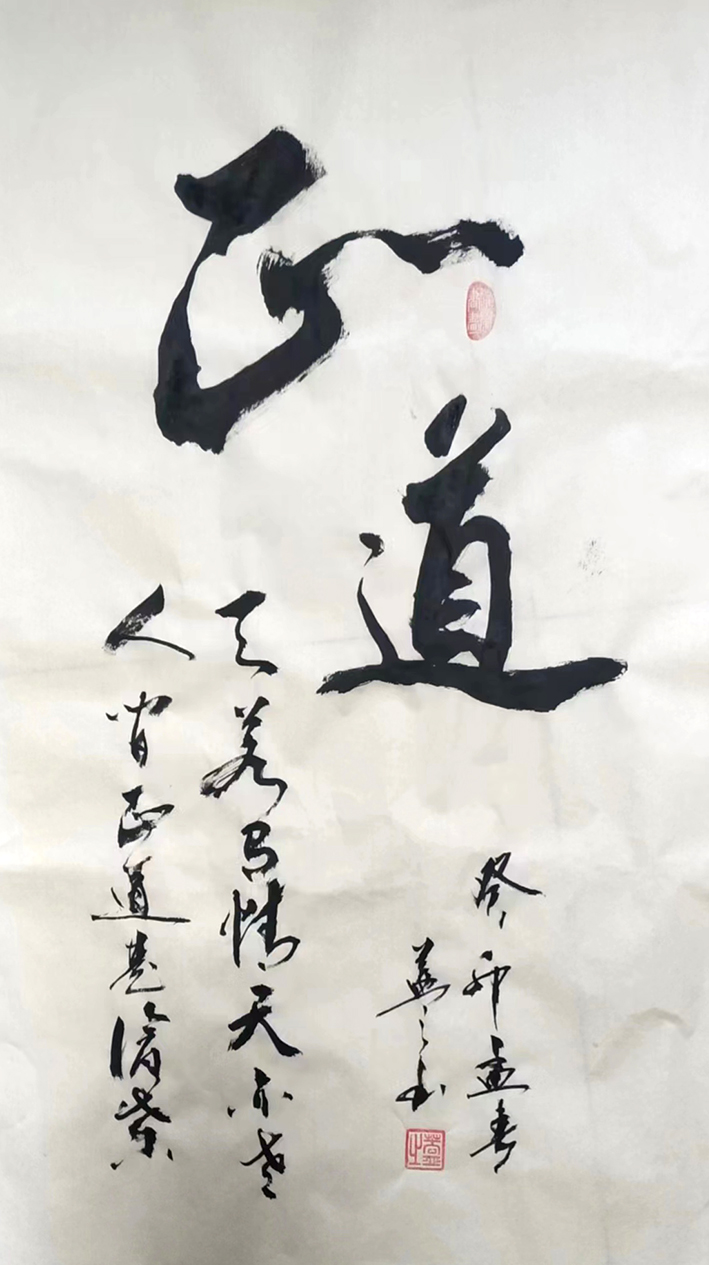 正
道
天若有情天亦老
人间正道是沧桑
癸卯孟春
之书